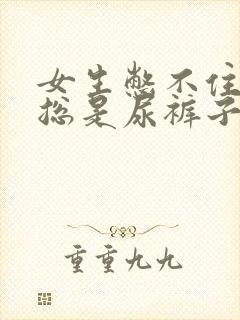 女生憋不住
总是尿裤子
重重九九